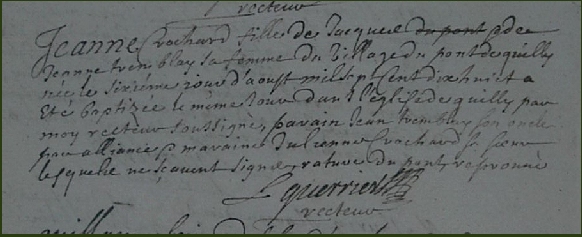 recteur
Jeanne Crochard fille de Jacque du pont & de
Jeanne tremblay sa femme du village du pont de quilly
née le sixieme jour d'aoust mil sept cent dix huict a
Eté baptizée le même jour dans l'eglise de quilly par
moy recteur soussigné, parain Jean tremblay son oncle
par alliance & maraine Julienne Crochard sa soeur
lesquels ne sçavent signer, rature du pont, reprouvé
Leguerrier
recteur